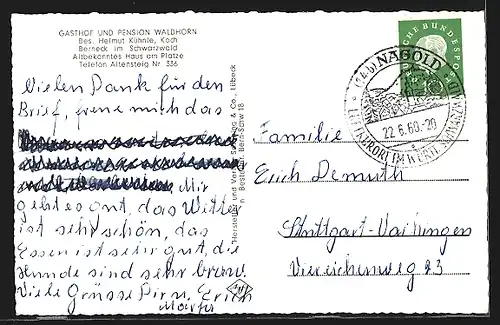 GASTHOF UND PENSION WALDHORN
Bes. Helmut Kühnle, Koch
Berneck im Schwarzwald
Altbekanntes Haus am Platze
Telefon Altensteig Nr. 336
Vielen Dank für den
Brief, freue mich das
Mir
geht es gut, das Wetter
ist sehr schön, das
Essen ist sehr gut, die
Hunde sind sehr brav.
Viele Grüsse Dir u. Erich
Martha
Hersteller und Verlag Schöning & Co., Lübeck
Bestell-Nr. Bern-Schw 18
DEUTSCHE BUNDESPOST
10
(14b) NAGOLD
22.6.60.-20
LUFTKURORT IM WÜRTT. SCHWARZWALD
Familie
Erich Demuth
Stuttgart-Vaihingen
Viereichenweg 23